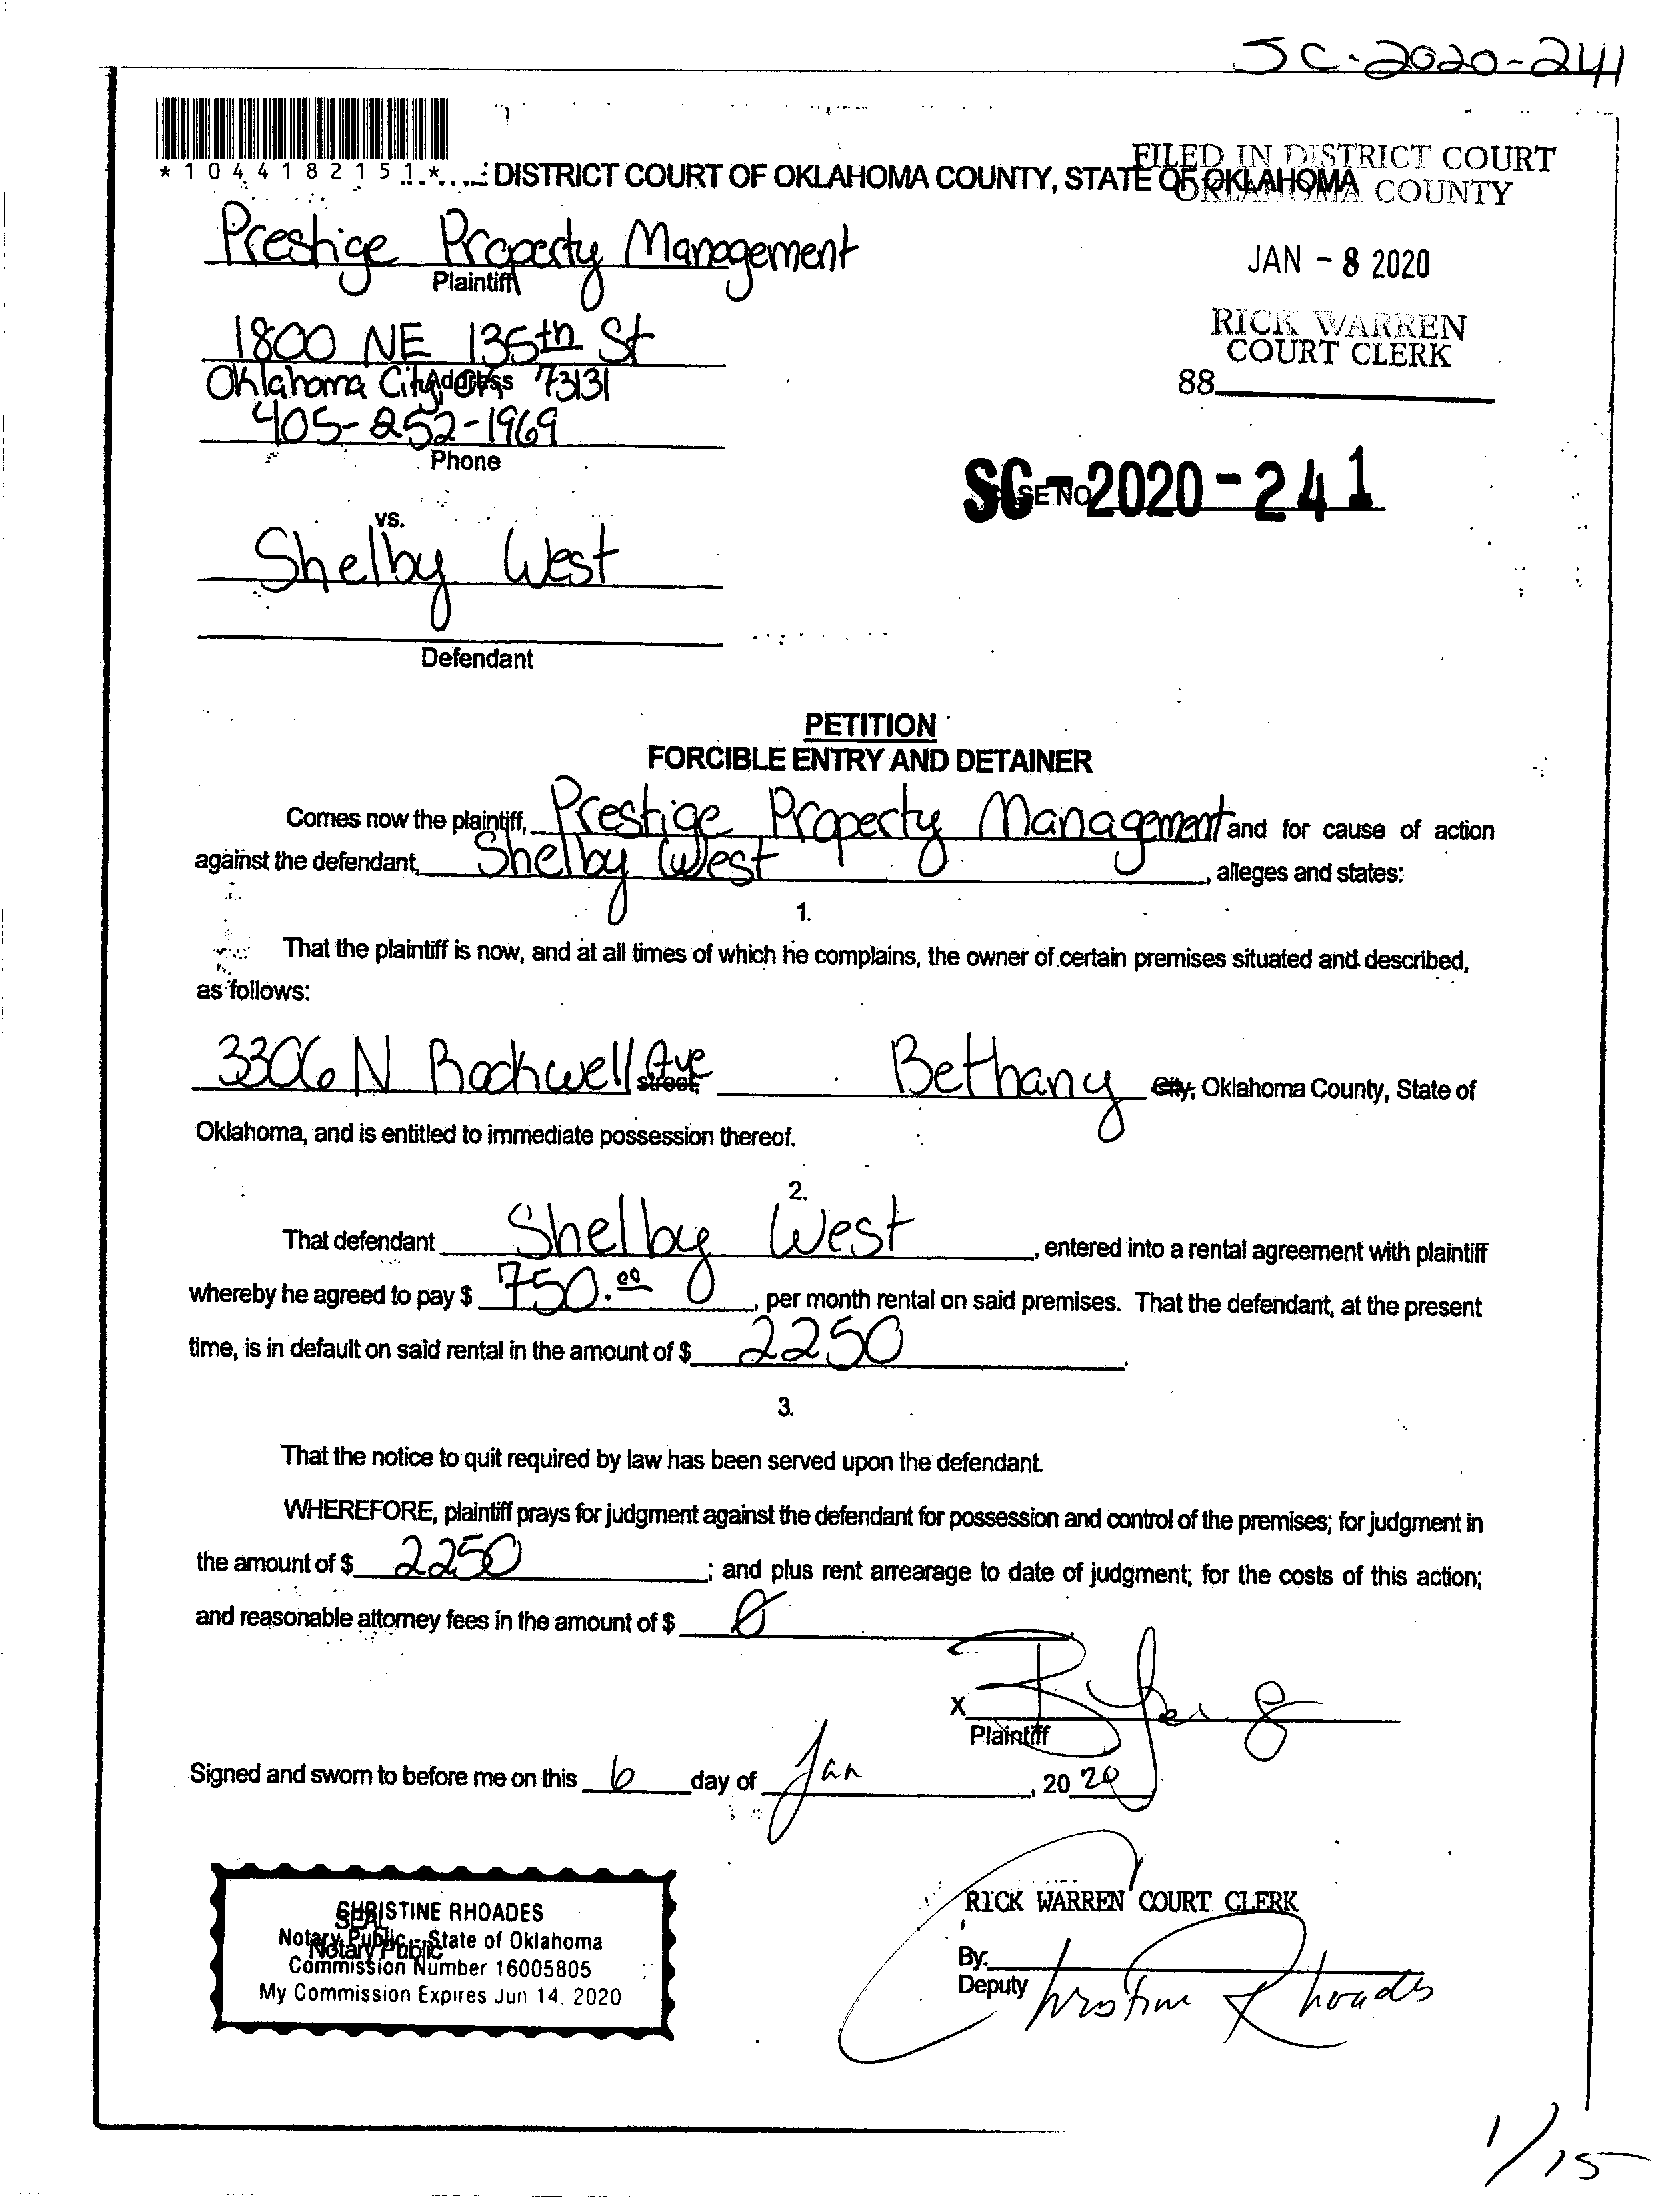 SC-2020-241
*1044182151*
DISTRICT COURT OF OKLAHOMA COUNTY, STATE OF OKLAHOMA
FILED IN DISTRICT COURT
OKLAHOMA COUNTY
Prestige Property Management
Plaintiff
JAN - 8 2020
1800 NE 136th St
Oklahoma City, OK 73131
Address
RICK WARREN
COURT CLERK
88
405-252-1969
Phone
SC-2020-241
CASE NO.
vs.
Shelby West
Defendant
PETITION
FORCIBLE ENTRY AND DETAINER
Comes now the plaintiff, Prestige Property Management and for cause of action
against the defendant, Shelby West, alleges and states:
1.
That the plaintiff is now, and at all times of which he complains, the owner of certain premises situated and described,
as follows:
3306 N Rockwell Ave street, Bethany City, Oklahoma County, State of
Oklahoma, and is entitled to immediate possession thereof.
2.
That defendant Shelby West, entered into a rental agreement with plaintiff
whereby he agreed to pay $ 750.00, per month rental on said premises. That the defendant, at the present
time, is in default on said rental in the amount of $ 2250.
3.
That the notice to quit required by law has been served upon the defendant.
WHEREFORE, plaintiff prays for judgment against the defendant for possession and control of the premises; for judgment in
the amount of $ 2250; and plus rent arrearage to date of judgment; for the costs of this action;
and reasonable attorney fees in the amount of $ 0
X
Plaintiff
Signed and sworn to before me on this 6 day of Jan, 2020
CHRISTINE RHOADES
SEAL
Notary Public - State of Oklahoma
Notary Public
Commission Number 16005805
My Commission Expires Jun 14, 2020
RICK WARREN COURT CLERK
By:
Deputy Christine Rhoades
1/15